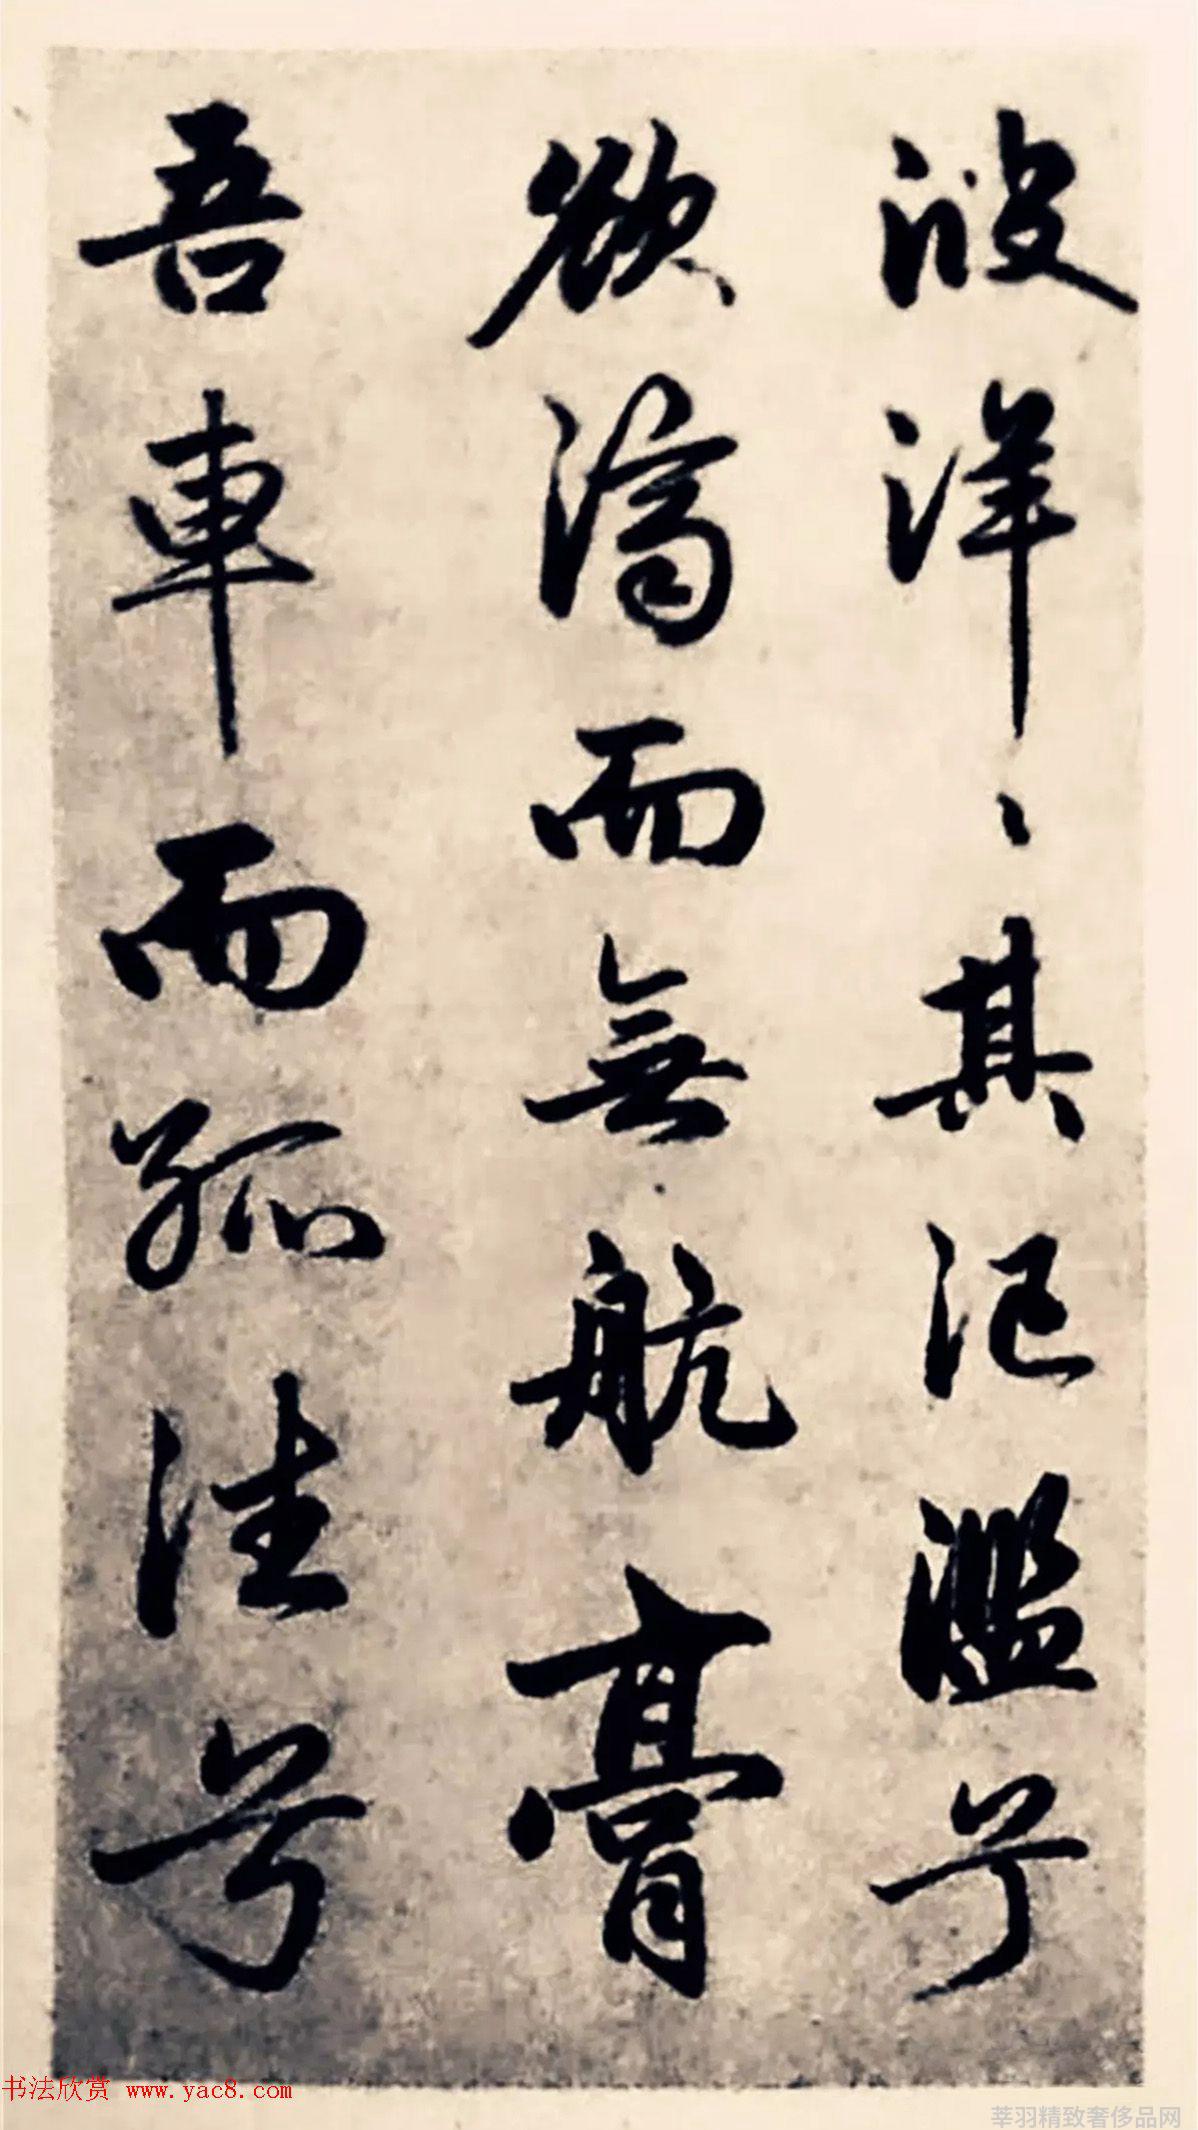 波洋〻其氾濫兮
欲濟而無航膏
吾車而孤往兮
书法欣赏 www.yac8.com
莘羽精致奢侈品网